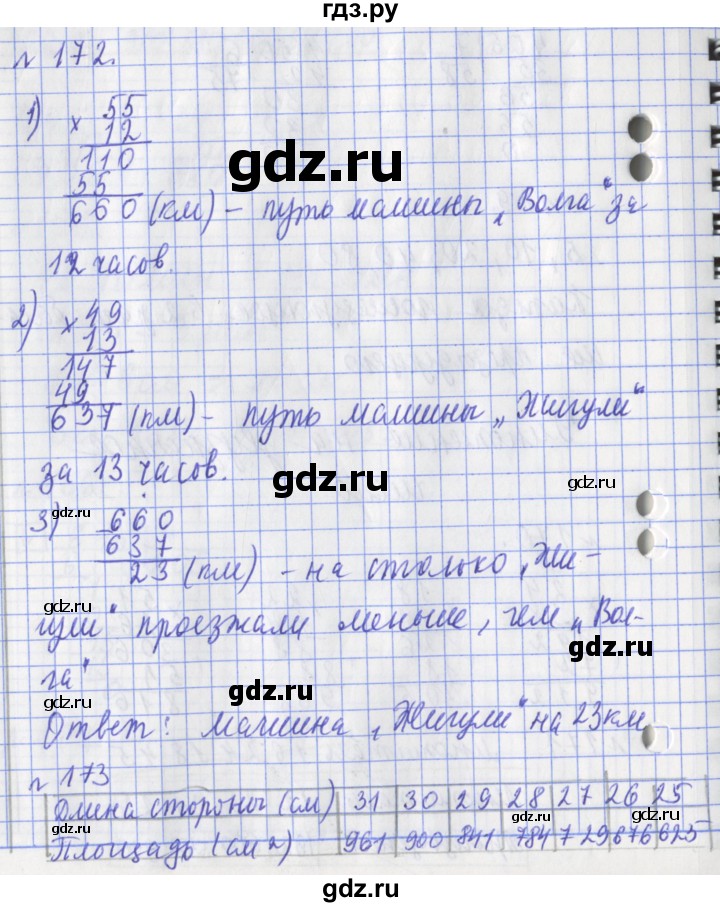 гдз.ру
№ 172.
1) × 55
12
110
55
660 (км) – путь машины „Волга“ за
12 часов.
2) × 49
13
147
49
637 (км) – путь машины „Жигули“
за 13 часов.
3) - 660
637
23 (км) – на столько „Жи-
гули“ проезжали меньше, чем „Вол-
га“
Ответ: машина „Жигули“ на 23 км
№ 173
Длина стороны (см) 31 30 29 28 27 26 25
Площадь (см²) 961 900 841 784 729 676 625
gdz.ru
gdz.ru
gdz.ru
gdz.ru
gdz.ru
gdz.ru
gdz.ru
gdz.ru
gdz.ru
gdz.ru